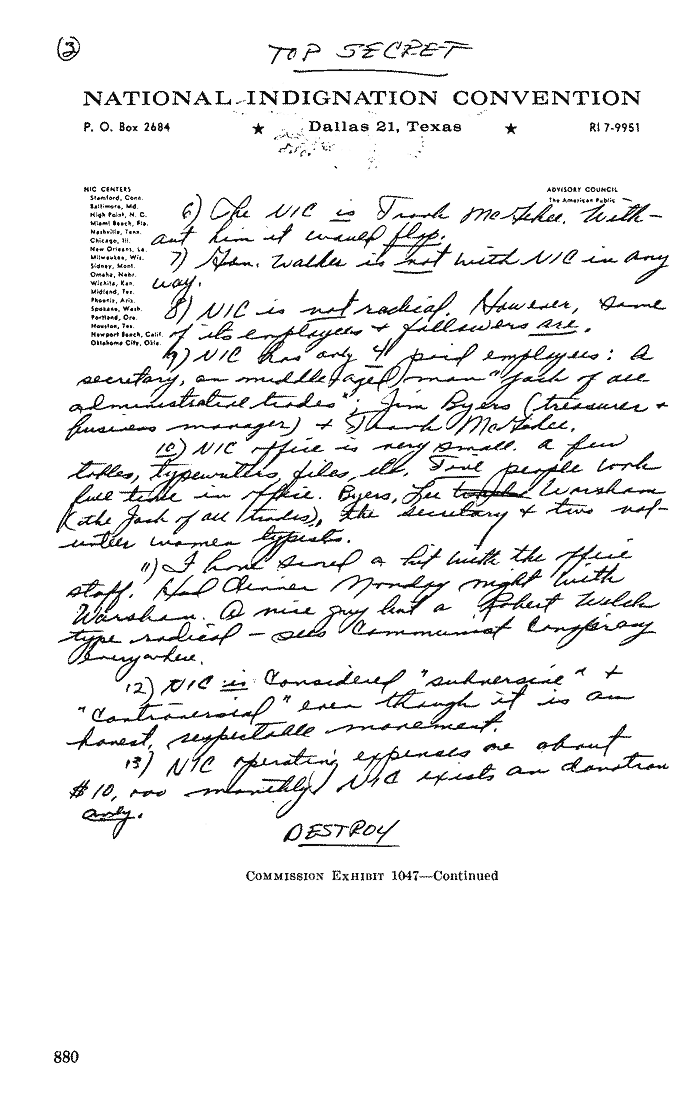 (3)
TOP SECRET
NATIONAL INDIGNATION CONVENTION
P. O. Box 2684 ★ Dallas 21, Texas ★ RI 7-9951
NIC CENTERS
Stamford, Conn.
Baltimore, Md.
High Point, N. C.
Miami Beach, Fla.
Nashville, Tenn.
Chicago, Ill.
New Orleans, La.
Milwaukee, Wis.
Sidney, Mont.
Omaha, Nebr.
Wichita, Kan.
Midland, Tex.
Phoenix, Ariz.
Spokane, Wash.
Portland, Ore.
Houston, Tex.
Newport Beach, Calif.
Oklahoma City, Okla.
ADVISORY COUNCIL
The American Public
6) The NIC is Frank McGehee. With-
out him it would flop.
7) Gen. Walker is not with NIC in any
way.
8) NIC is not radical. However, some
of its employees & followers are.
9) NIC has only 4 paid employees: A
secretary, an middle aged man "jack of all
administrative trades"; Jim Byers (treasurer &
business manager) & Frank McGehee.
10) NIC office is very small. A few
tables, typewriters, files, etc. Five people work
full time in office. Byers, Lee Warsham
(the Jack of all trades), the secretary & two vol-
unteer women typists.
11) I have scored a hit with the office
staff. Had dinner Monday night with
Warsham. A nice guy but a Robert Welch
type radical - sees Communist Conspiracy
everywhere.
12) NIC is considered "subversive" &
"controversial" even though it is an
honest, respectable movement.
13) NIC operating expenses are about
$10,000 monthly. NIC exists on donation
only.
DESTROY
COMMISSION EXHIBIT 1047—Continued
880